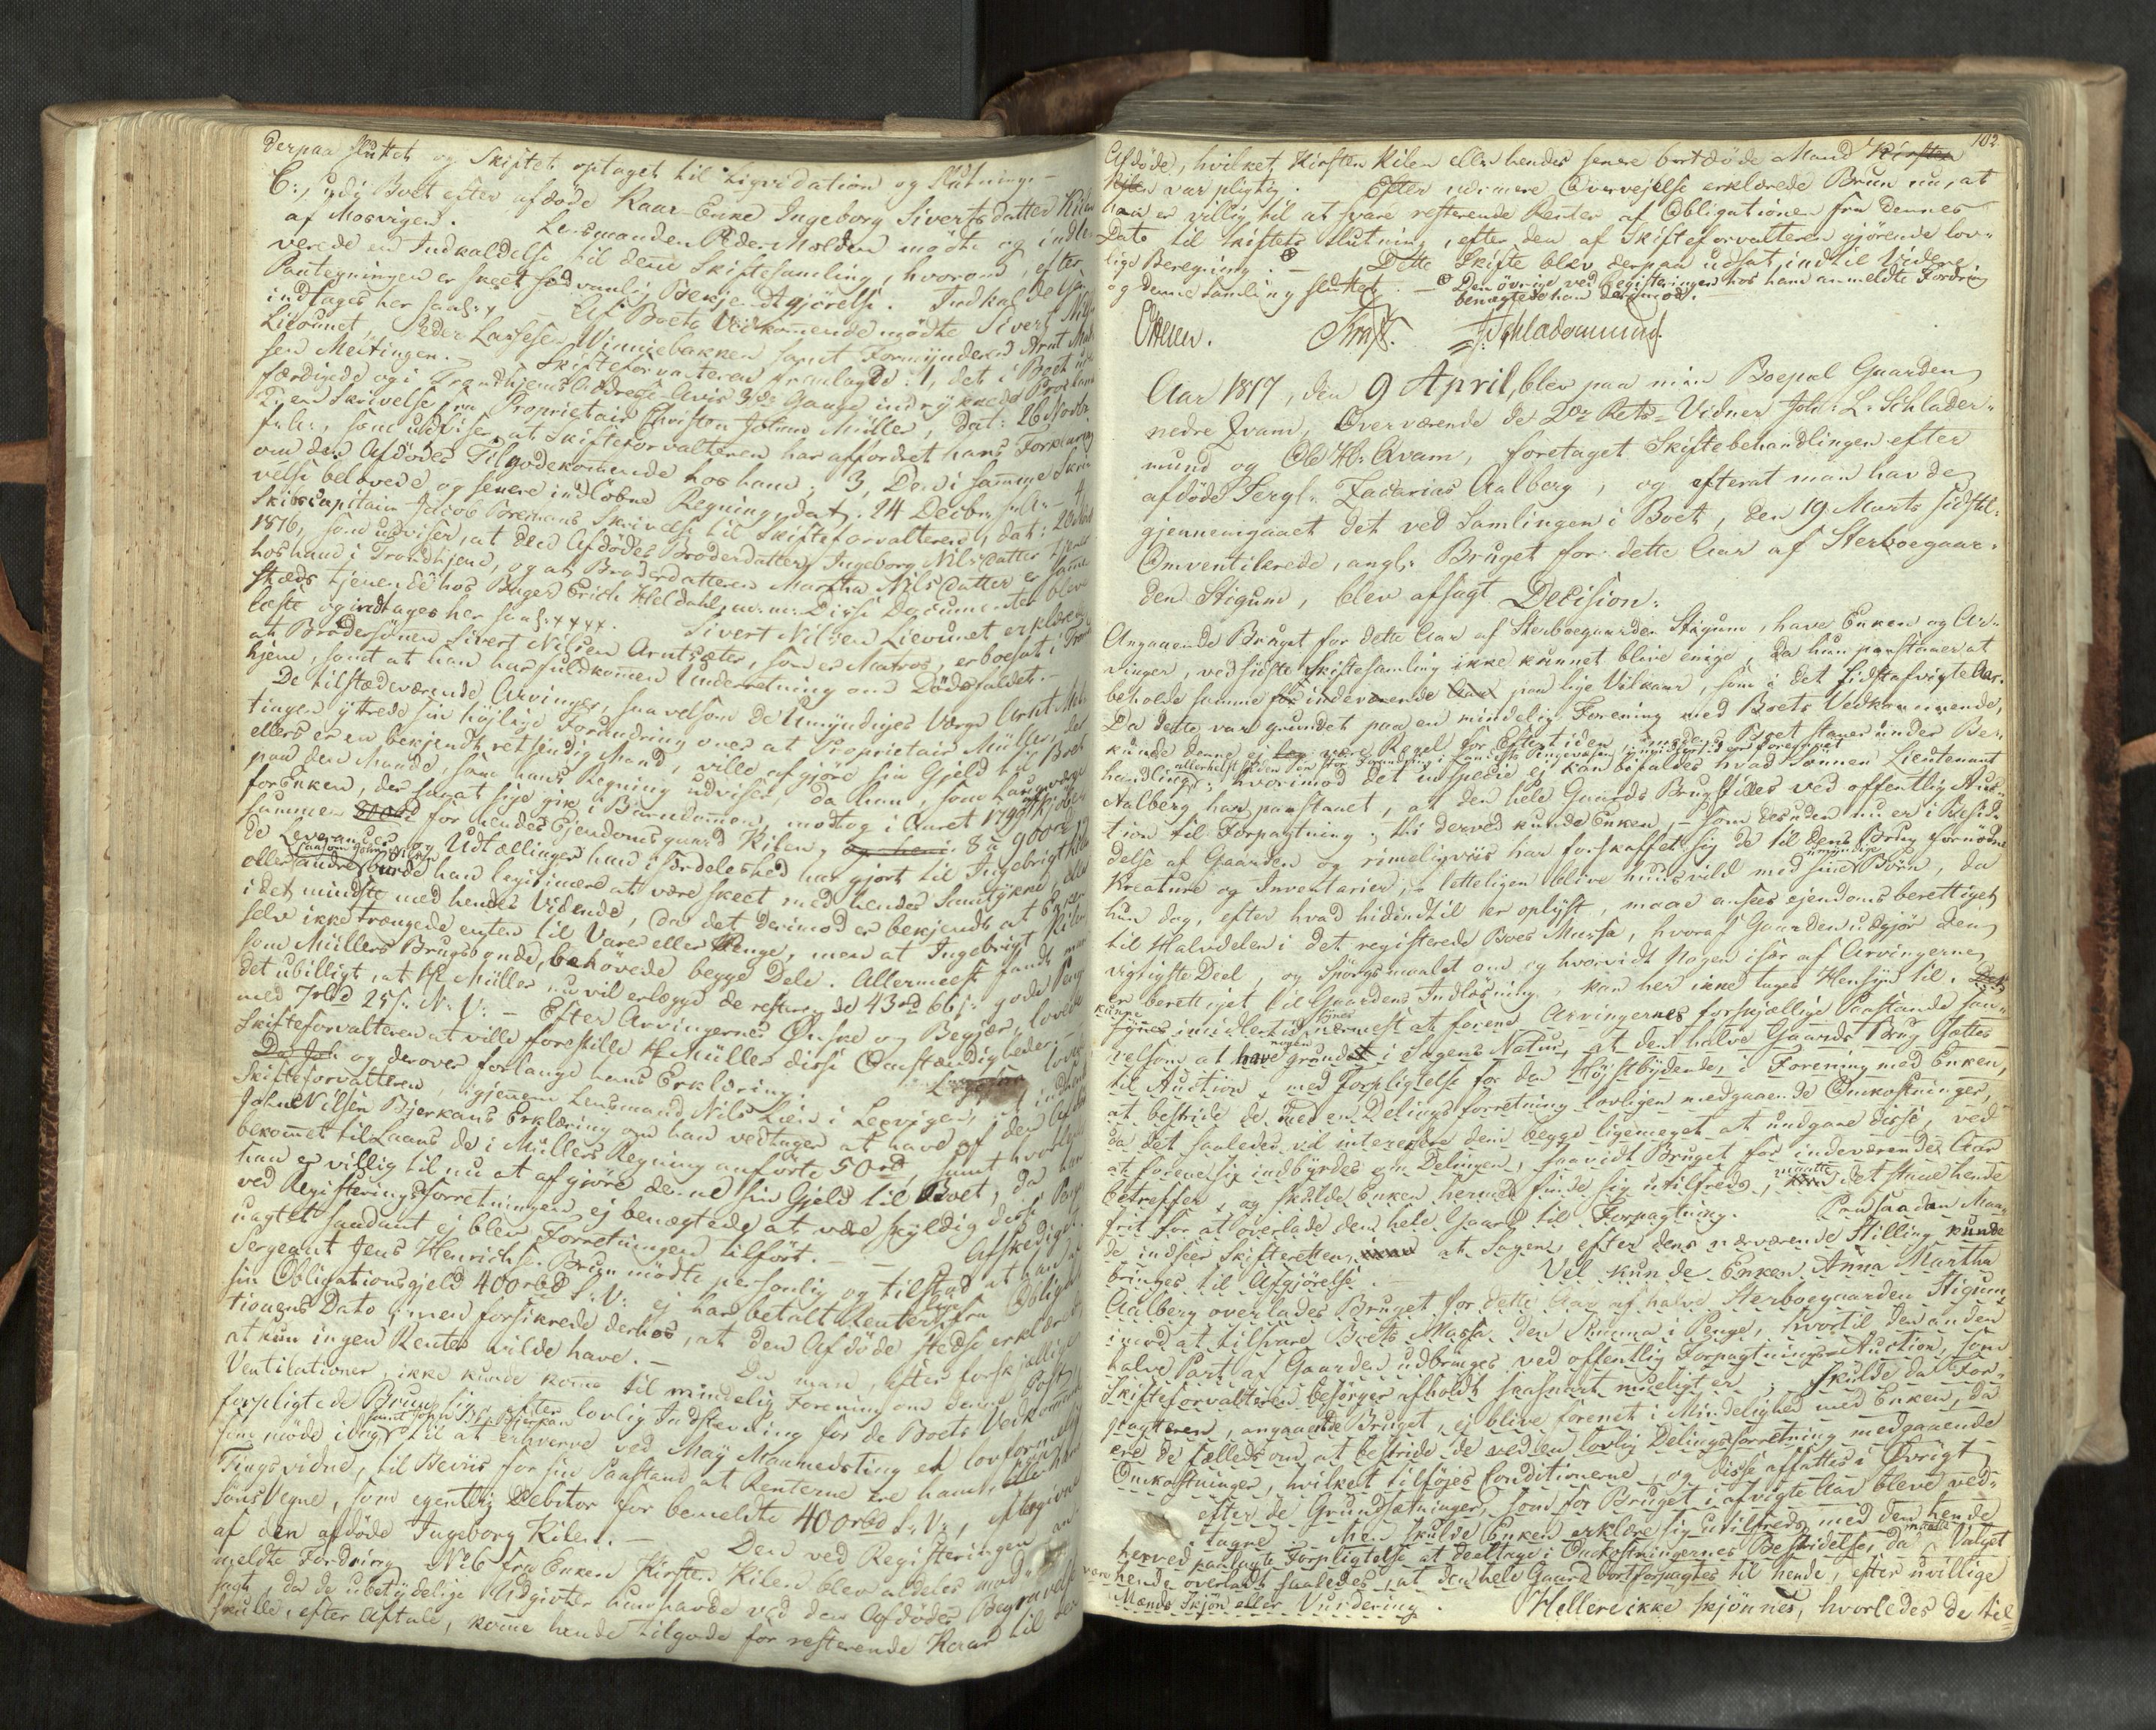 derpaa sluttet og Skiftet optaget til Liqvidation og Slutning. –
C:, udj Boet efter afdöde Kaar-Enke Ingeborg Sivertsdatter Kilen
af Mosvigen. Lensmanden Peder Molden mödte og indle-
verede en Indkaldelse til denne Skiftesamling, hvorom, efter
Paategningen er skeet sædvanlig Bekjendtgjörelse. Indkaldelsen
indtages her saal: x Af Boets Vedkommende mödte Sivert Nilsen
Lievunet, Peder Larsen Vinniebakken samt Formynderen Arnt
sen Meitingen. – Skifteforvalteren fremlagde: 1, det i Boet ud-
færdigede og i Trondhjems Adresse-Avis 3de Gange indrykkede Proclama
2, en Skrivelse fra Proprietair Christen Johan Müller, dat: 26 Novbr
f: A:, som udviser, at Skifteforvalteren har affordret hans Forklaring
om den Afdödes Tilgodekommende hos ham; 3, Den i samme Skri-
velse belovede og senere indlöbne Regning, dat: 24 Decbr. f: A: – 4,
Skibscapitain Jacob Bremans Skrivelse til Skifteforvalteren, dat: 20
1816, som udviser, at den Afdödes Broderdatter Ingeborg Nilsdatter tjener
hos ham i Trondhjem, og at Broderdatteren Martha Nilsdatter er samme
stæds tjenende hos Bager Erich Heldahl, m: m: Disse Documenter blev
læste og indtages her saal: x x x x. Sivert Nilsen Lievunet erklærede
at Brodersönnen Sivert Nilsen Arntsæter, som er Matros, er boesat i Trond-
hjem, samt at han har fuldkommen Underretning om Dödsfaldet. –
De tilstædeværende Arvinger, saavelsom de Umyndiges Værge Arnt
tingen yttrede sin höjlige Forundring over at Proprietair Müller, der
ellers er en bekjendt retsindig Mand, ville afgjöre sin Gjeld til Boet
paa den Maade, som hans Regning udviser, da han, som Laugværge
for Enken, der saaat sige gik i Barndommen, modtog i Aaret 1799
Summen for hendes Ejendomsgaard Kilen, 8 a 900 rd
de Leverancer og Udtællinger han i særdeleshed har gjort til Ingebrigt Kilen
eller andre burde han legitimere at være skeet med hendes Samtykke, eller
i det mindste med hendes Vidende, da det derimod er bekjendt at Enken
selv ikke trængede enten til Varer eller Penge, men at Ingebrigt Kilen
som Müllers Brugsbonde, behövede begge Dele. Allermeest fandt man
det ubilligt, at Hr Müller nu vil erlægge de resterende 43 rd 66 s: gode Penge
med 7 rbd 25 s: N: V: – Efter Arvingernes Önske og Begjær, lovede
Skifteforvalteren at ville forestille Hr Müller disse Omstændigheder
og derover forlange hans Erklæring.
Skifteforvalteren, igjennem Lensmand Nils Lein i Lexvigen, indhente
John Nilsen Bjerkans Erklæring om han vedtager at have af den Afdöde
bekommet tillaans de i Müllers Regning anförte 50 rd, samt hvorledes
han er villig til nu at afgjöre denne sin Gjeld til Boet, da han
ved Registeringsforretningen ej benægtede at være skyldig disse Penge
uagtet saadant ej blev Forretningen tilfört. – – Afskediget
Sergeant Jens Henrichs: Brun mödte personlig og tilstod at han af
sin Obligationsgjeld 400 rbd S: V: ej har betalt Renter fra Obliga-
tionens Dato; men forsikrede derhos, at den Afdöde stedse erklærede
at hun ingen Renter vilde have. – Da man, efter forskjællige
Ventilationer ikke kunde komme til mindelig Forening om denne Post
forpligtede Brun sig, efter lovlig Indstævning for de Boets Vedkommende
som möde idag, samt John Nils: Bjerkan til at erhverve ved Maÿ Maanedsting et lovformeligt
Tingsvidne, til Beviis for sin Paastand at Renterne ere ham, eller hans
Söns Vegne, som egentlig Debitor for bemeldte 400 rbd S: V:, eftergivne
af den afdöde Ingeborg Kilen. – Den ved Registeringen an-
meldte Fordring No 6 fra Enken Kirsten Kilen blev aldeles mod-
sagt, da de ubetydelige Udgivter hun havde ved den Afdödes Begravelse
skulle, efter Aftale, komme hende tilgode for resterende Kaar til den
102
Afdöde, hvilket Kirsten Kilen eller hendes senere bortdöde Mand Kirsten
Kilen var pligtig. Efter nærmere Overvejelse erklærede Brun nu, at
han er villig til at svare resterende Renter af Obligationen fra dennes
Dato til Skiftets Slutning, efter den af Skifteforvalteren gjörende lov-
lige Beregning. – Dette Skifte blev derpaa udsat indtil Videre
og denne Samling sluttet. – Den övrige ved Registeringen hos ham anmeldte Fordring
benægtede han derimod. –
Schladermund.
Aar 1817, den 9 April, blev paa min Boepæl Gaarden
nedre Qvam, Overværende de 2de Rets-Vidner Joh: L: Schlader-
mund og Ole H: Qvam, foretaget Skiftebehandlingen efter
afdöde Sergt: Zacarias Aalberg, og efterat man havde
gjennemgaaet det ved Samlingen i Boet, den 19 Marts sidstl:
Omventilerede, angl: Bruget for dette Aar af Sterboegaar-
den Stigum, blev afsagt Decision:
Angaaende Bruget for dette Aar af Sterboegaarden Stigum, have Enken og Ar-
vinger, ved sidste Skiftesamling ikke kunnet blive enige, da hun paastaaer at
beholde samme for indeværende Aar paa lige Vilkaar, som i det sidstafvigte Aar.
Da dette var grundet paa en mindelig Forening med Boets Vedkommende,
kunde denne ej være Regel for Eftertiden, imedens Boet staaer under Be-
allerhelst siden en stor Forandring i Landets Pengevæsen imidlertid er foregaaet
handling; hvorimod det in specie ej kan bifaldes hvad Sönnen Lieutenant
Aalberg har paastaaet, at den hele Gaards Brug stilles ved offentlig Auc-
tion til Forpagtning; thi derved kunde Enken, – som desuden nu er i Besid-
delse af Gaarden og rimeligviis har forskaffet sig de til dens Brug fornödne
Kreature og Inventarier, – letteligen blive huusvild med sine umyndige Börn, da
hun dog, efter hvad hidindtil er oplyst, maae ansees ejendomsberettiget
til Halvdelen i det registerede Boes Massa, hvoraf Gaarden udgjör den
vigtigste Deel, og Spörgsmaalet om og hvorvidt Nogen især af Arvingerne
er berettiget til Gaardens Indlösning, kan her ikke tages Hensyn til. Det
kunne synes imidlertid nærmest at forene Arvingernes forskjællige Paastande saa-
velsom at have nogen grund i Sagens Natur, at den halve Gaards Brug sættes
til Auction, med Forpligtelse for den Höjestbydende, i Forening med Enken,
at bestride de med en Delings forretning lovligen medgaaende Omkostninger,
da det saaledes vil interessere dem begge ligemeget at undgaae disse, ved
at forene sig indbyrdes om Delingen, saavidt Bruget for indeværende Aar
betreffer, og skulde Enken hermed finde sig utilfreds, maatte det staae hende
frit for at overlade den hele Gaard til Forpagtning. Paa saadan Maa-
de indseer Skifteretten at Sagen, efter dens nærværende Stilling kunde
bringes til Afgjörelse. Vel kunde Enken Anna Martha
Aalberg overlades Bruget for dette Aar af halve Sterboegaarden Stigum,
imod at tilsvare Boets Massa den Summa i Penge, hvortil den anden
halve Part af Gaarden udbringes ved offentlig Forpagtnings-Auction, som
Skifteforvalteren besörger afholdt saasnart mueligt er; skulde da For-
pagteren, angaaende Bruget, ej blive forenet i Mindelighed med Enken, da
ere de fælleds om, at bestride de ved en lovlig Delingsforretning medgaaende
Omkostninger, hvilket tilföjes Conditionerne, og disse affattes i Övrigt
efter de Grundsætninger, som for Bruget i afvigte Aar bleve ved-
tagne. – Men skulde Enken erklære sig utilfreds med den hende
herved paalagte Forpligtelse at deeltage i Omkostningernes Bestridelse, da maatte Valget
være hende overladt saaledes, at den hele Gaard bortforpagtes til hende, efter uvillige
Mænds Skjön eller Vurdering. Hellere ikke skjönnes, hvorledes de til-